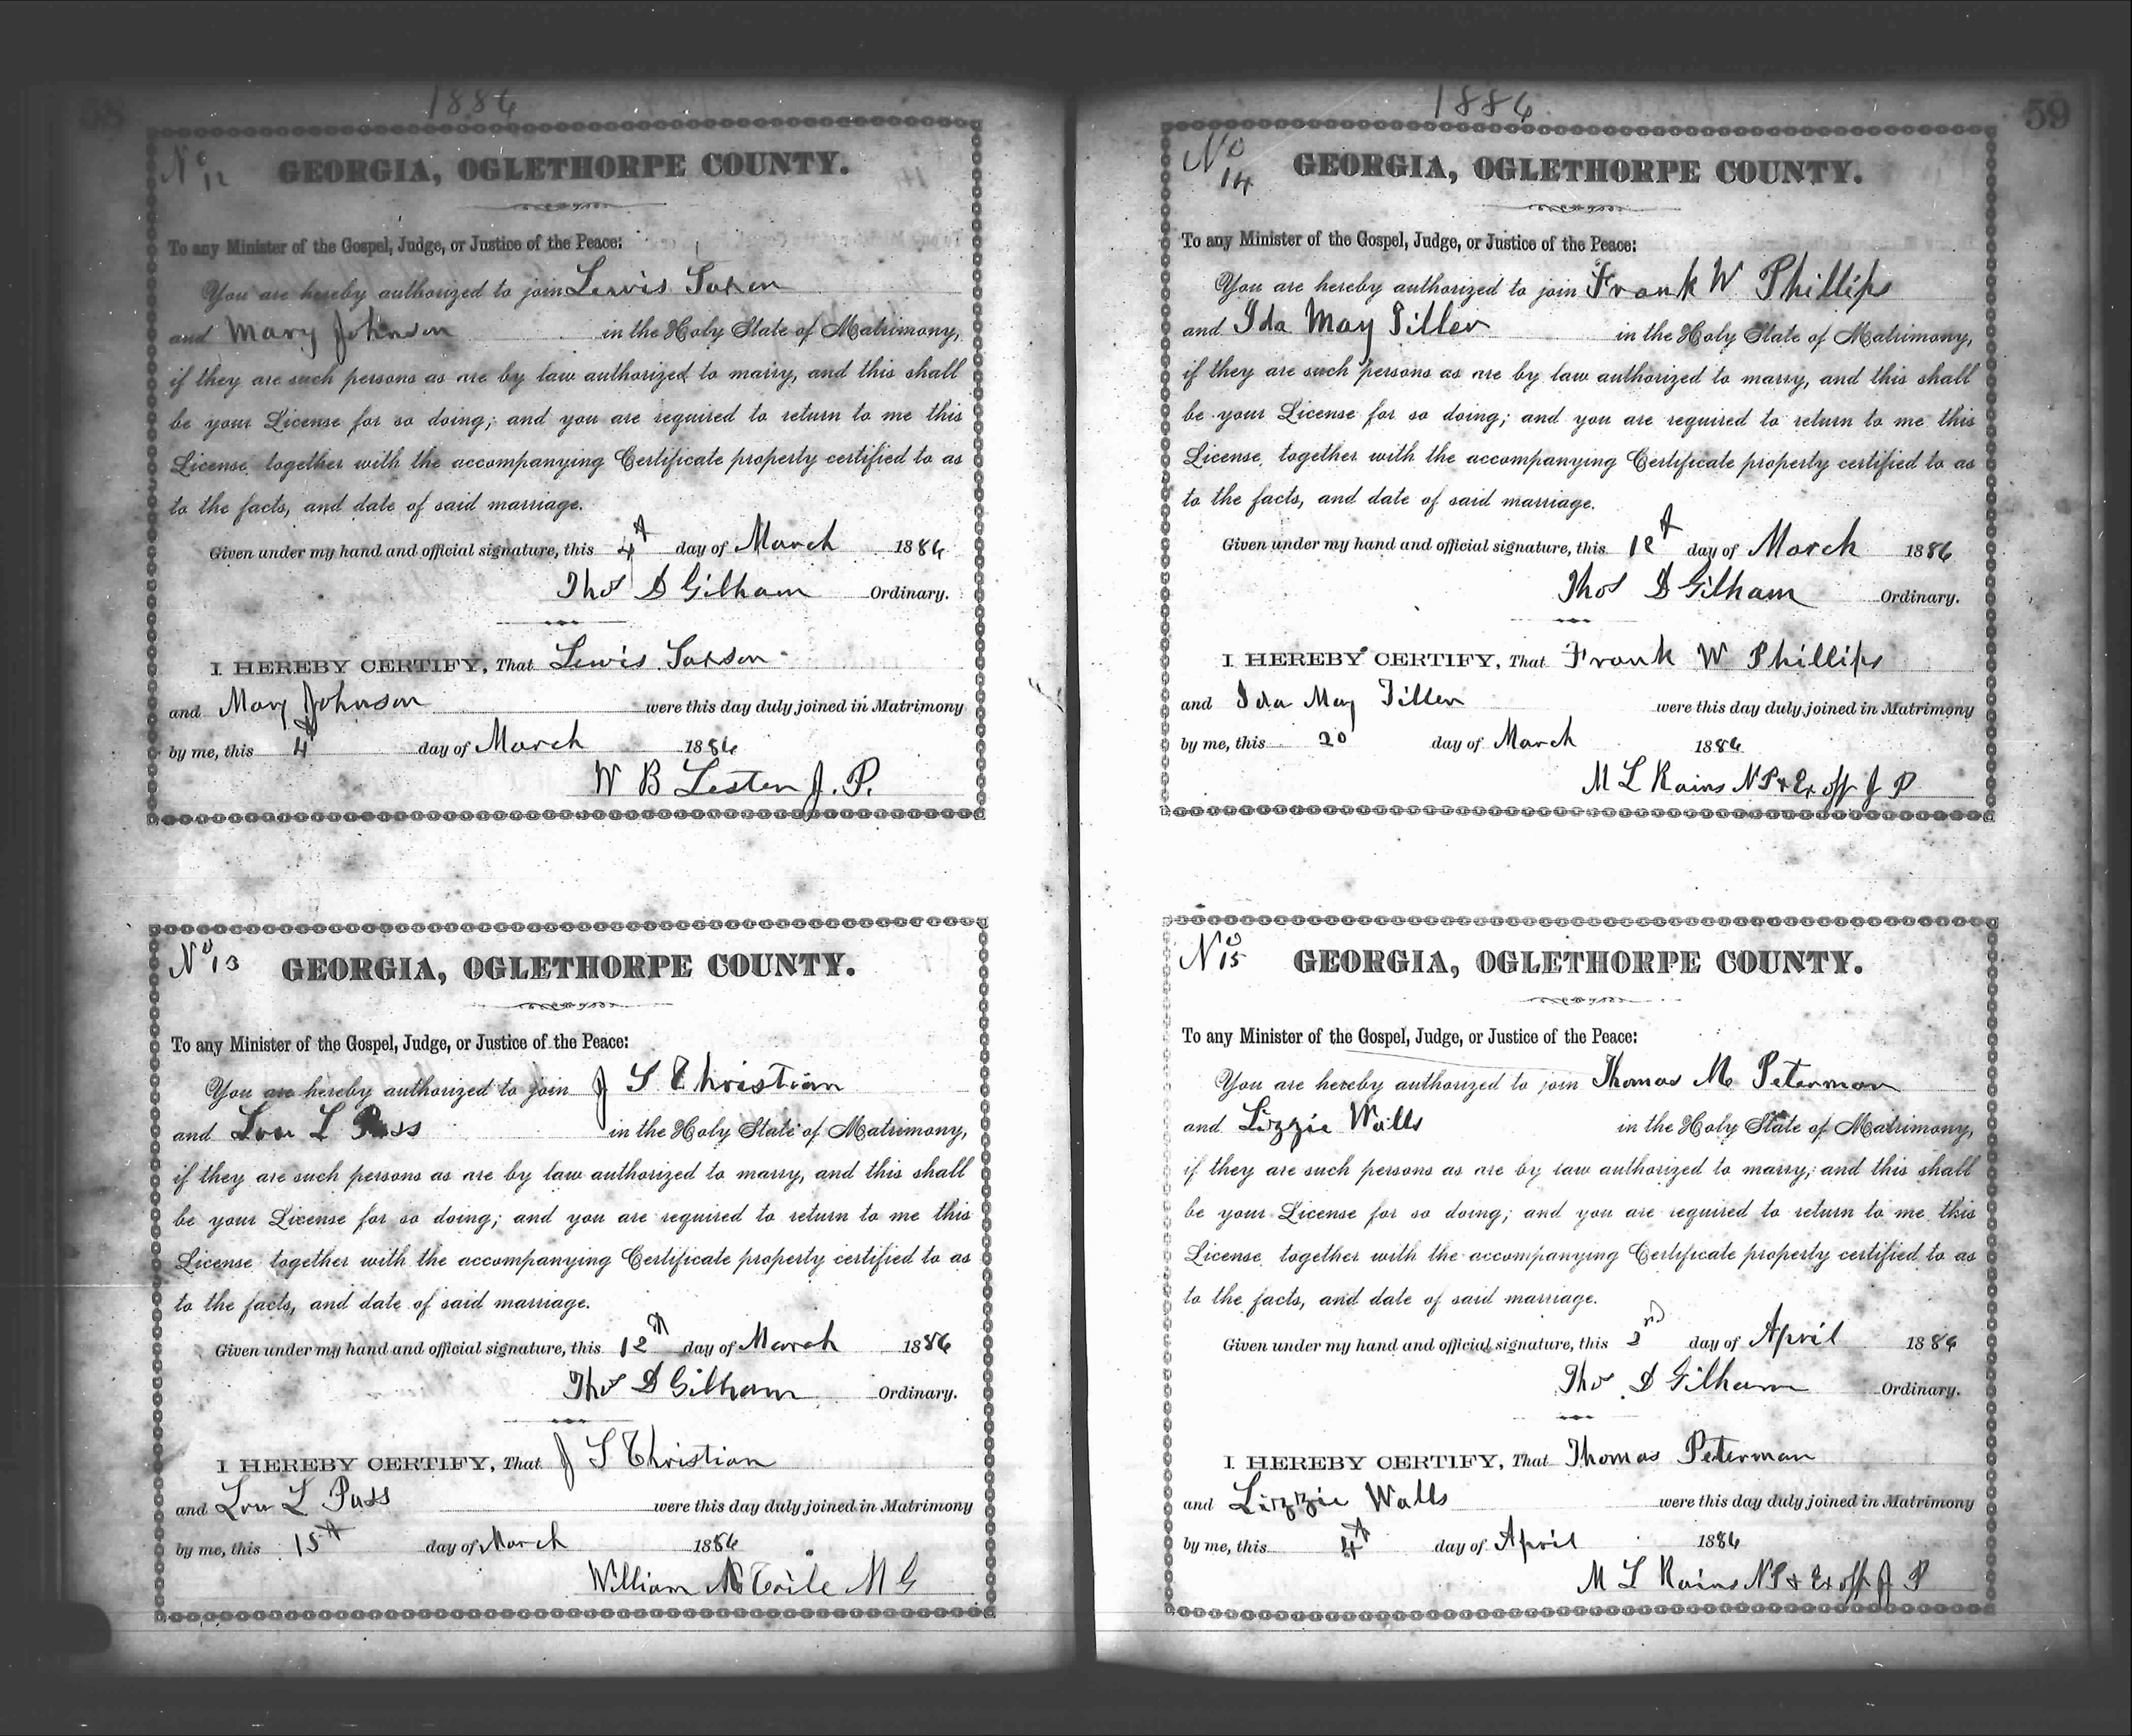 58
1886
No 12
GEORGIA, OGLETHORPE COUNTY.
To any Minister of the Gospel, Judge, or Justice of the Peace:
You are hereby authorized to join Lewis Saxon
and Mary Johnson in the Holy State of Matrimony,
if they are such persons as are by law authorized to marry, and this shall
be your License for so doing; and you are required to return to me this
License, together with the accompanying Certificate property certified to as
to the facts, and date of said marriage.
Given under my hand and official signature, this 4th day of March 1886
Thos D Gilham Ordinary.
I HEREBY CERTIFY, That Lewis Saxson
and Mary Johnson were this day duly joined in Matrimony
by me, this 4 day of March 1886
W B Lester J. P.
No 13
GEORGIA, OGLETHORPE COUNTY.
To any Minister of the Gospel, Judge, or Justice of the Peace:
You are hereby authorized to join J S Christian
and Lou L Pass in the Holy State of Matrimony,
if they are such persons as are by law authorized to marry, and this shall
be your License for so doing; and you are required to return to me this
License, together with the accompanying Certificate property certified to as
to the facts, and date of said marriage.
Given under my hand and official signature, this 12th day of March 1886
Thos D Gilham Ordinary.
I HEREBY CERTIFY, That J S Christian
and Lou L Pass were this day duly joined in Matrimony
by me, this 15th day of March 1886
William M G
59
1886
No 14
GEORGIA, OGLETHORPE COUNTY.
To any Minister of the Gospel, Judge, or Justice of the Peace:
You are hereby authorized to join Frank W Phillips
and Ida May Tiller in the Holy State of Matrimony,
if they are such persons as are by law authorized to marry, and this shall
be your License for so doing; and you are required to return to me this
License, together with the accompanying Certificate property certified to as
to the facts, and date of said marriage.
Given under my hand and official signature, this 12th day of March 1886
Thos D Gilham Ordinary.
I HEREBY CERTIFY, That Frank W Phillips
and Ida May Tiller were this day duly joined in Matrimony
by me, this 20 day of March 1886
M L Rains N P & Ex off J P
No 15
GEORGIA, OGLETHORPE COUNTY.
To any Minister of the Gospel, Judge, or Justice of the Peace:
You are hereby authorized to join Thomas M Peterman
and Lizzie Walls in the Holy State of Matrimony,
if they are such persons as are by law authorized to marry, and this shall
be your License for so doing; and you are required to return to me this
License, together with the accompanying Certificate property certified to as
to the facts, and date of said marriage.
Given under my hand and official signature, this 3rd day of April 1886
Thos D Gilham Ordinary.
I HEREBY CERTIFY, That Thomas Peterman
and Lizzie Walls were this day duly joined in Matrimony
by me, this 4th day of April 1886
M L Rains N P & Ex off J P